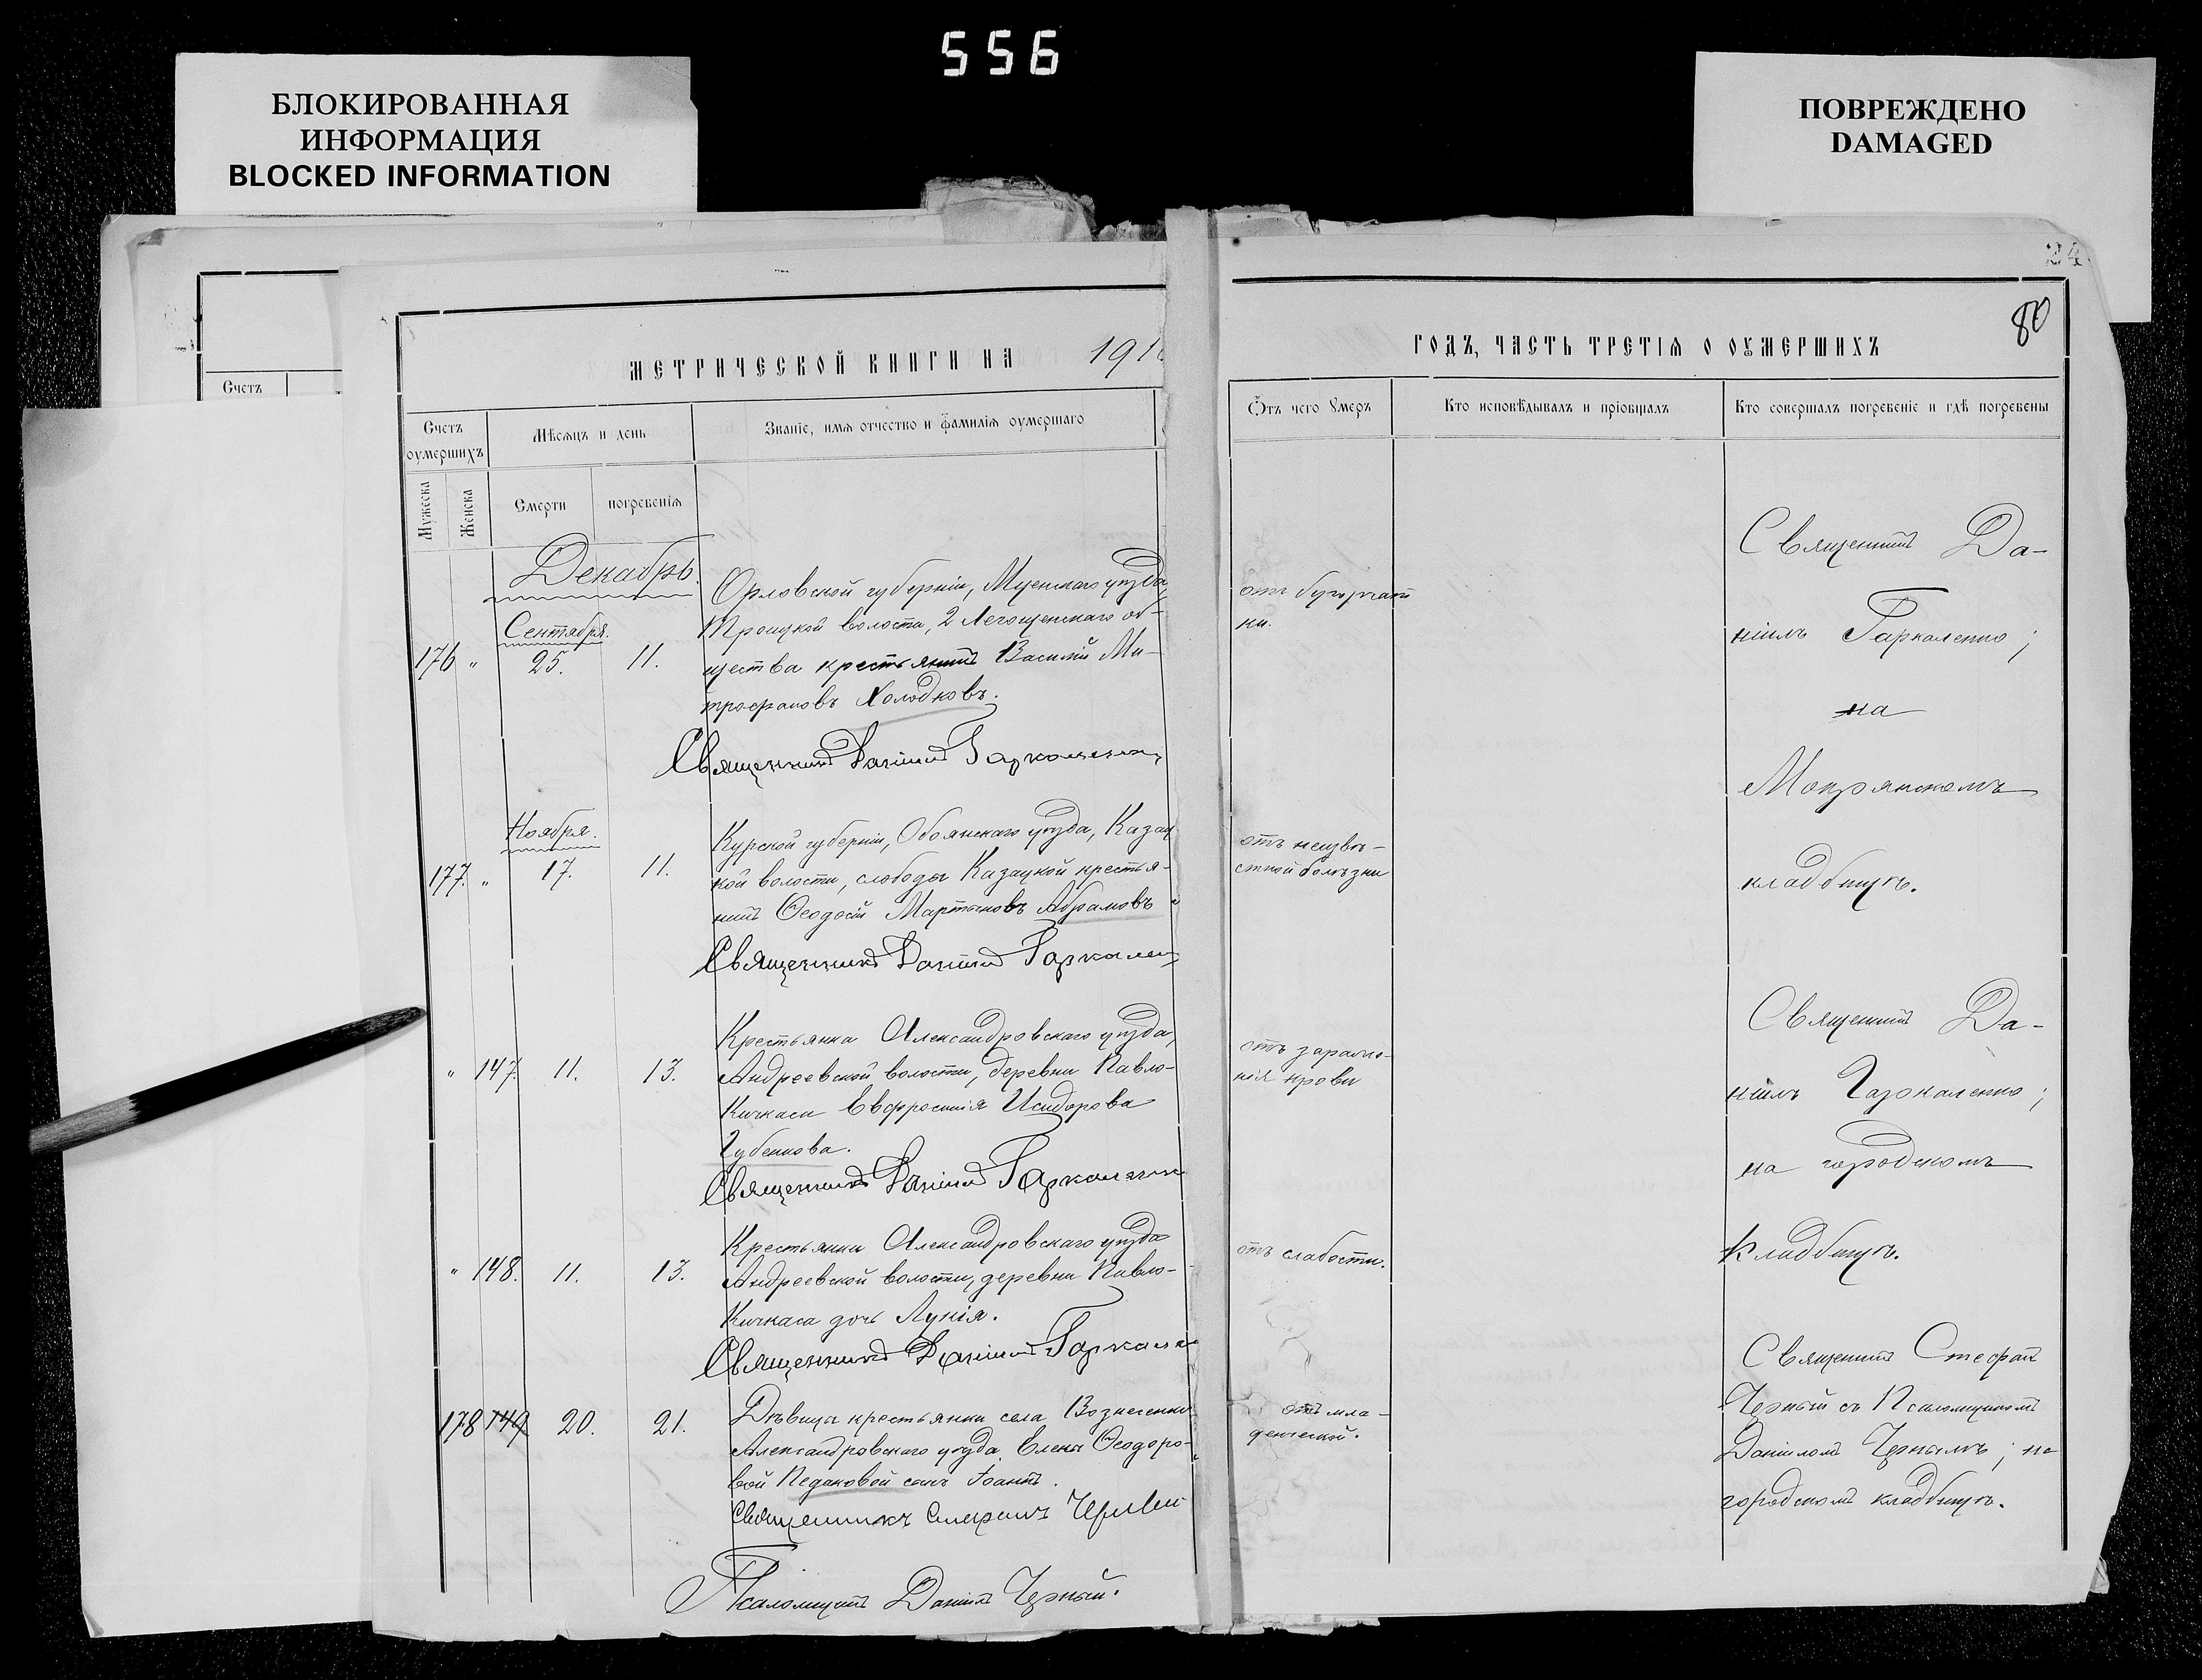 556
БЛОКИРОВАННАЯ
ИНФОРМАЦИЯ
BLOCKED INFORMATION
ПОВРЕЖДЕНО
DAMAGED
24
80
Счетъ
МЕТРИЧЕСКОЙ КНИГИ НА 191
ГОДЪ, ЧАСТЬ ТРЕТІЯ О ОУМЕРШИХЪ
Счетъ оумершихъ
Мужеска
Женска
Мѣсяцъ и день
Смерти
погребенія
Званіе, имя отчество и фамилія оумершаго
Отъ чего Умеръ
Кто исповѣдывалъ и пріобщалъ
Кто совершалъ погребеніе и гдѣ погребены
Декабрь.
Сентября.
176 " 25. 11.
Орловской губерніи, Мценскаго уѣзда,
Троицкой волости, 2 Легощенскаго об-
щества крестьянинъ Василій Ми-
трофановъ Холодковъ.
Священникъ Даніилъ Гаркаленко
отъ бугорчат
ки.
Священникъ Да-
ніилъ Гаркаленко;
на
Мокрянскомъ
кладбищѣ.
Ноября.
177. " 17. 11.
Курской губерніи, Обоянскаго уѣзда, Казац-
кой волости, слободы Казацкой крестья-
нинъ Ѳеодосій Мартыновъ Абрамовъ
Священникъ Даніилъ Гаркален
отъ неизвѣ-
стной болѣзни
" 147. 11. 13.
Крестьянка Александровскаго уѣзда,
Андреевской волости, деревни Павло-
Кичкаса Евфросинія Исидорова
Губенкова.
Священникъ Даніилъ Гаркаленко
отъ зараже-
нія крови
Священникъ Да-
ніилъ Гаркаленко;
на городскомъ
кладбищѣ.
" 148. 11. 13.
Крестьянки Александровскаго уѣзда
Андреевской волости, деревни Павло-
Кичкаса дочь Лукія.
Священникъ Даніилъ Гаркале
отъ слабости.
178 149 20. 21.
Дѣвицы крестьянки села Вознесенки
Александровскаго уѣзда Елены Ѳеодоро-
вой Педаковой сынъ Іоаннъ.
Священникъ Стефанъ Черный
Псаломщикъ Даніилъ Черный.
отъ мла-
денческой.
Священникъ Стефанъ
Черный съ Псаломщикомъ
Даніиломъ Чернымъ; на
городскомъ кладбищѣ.